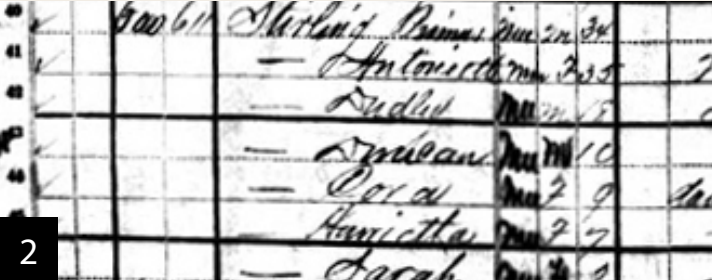 40 611 Stirling Primus Mu m 34
41 — Antoinette Mu F 35
42 — Dudley Mu m
43 — Duncan Mu M 10
44 — Cora Mu F 9
Harrietta Mu F 7
— Sarah Mu
2